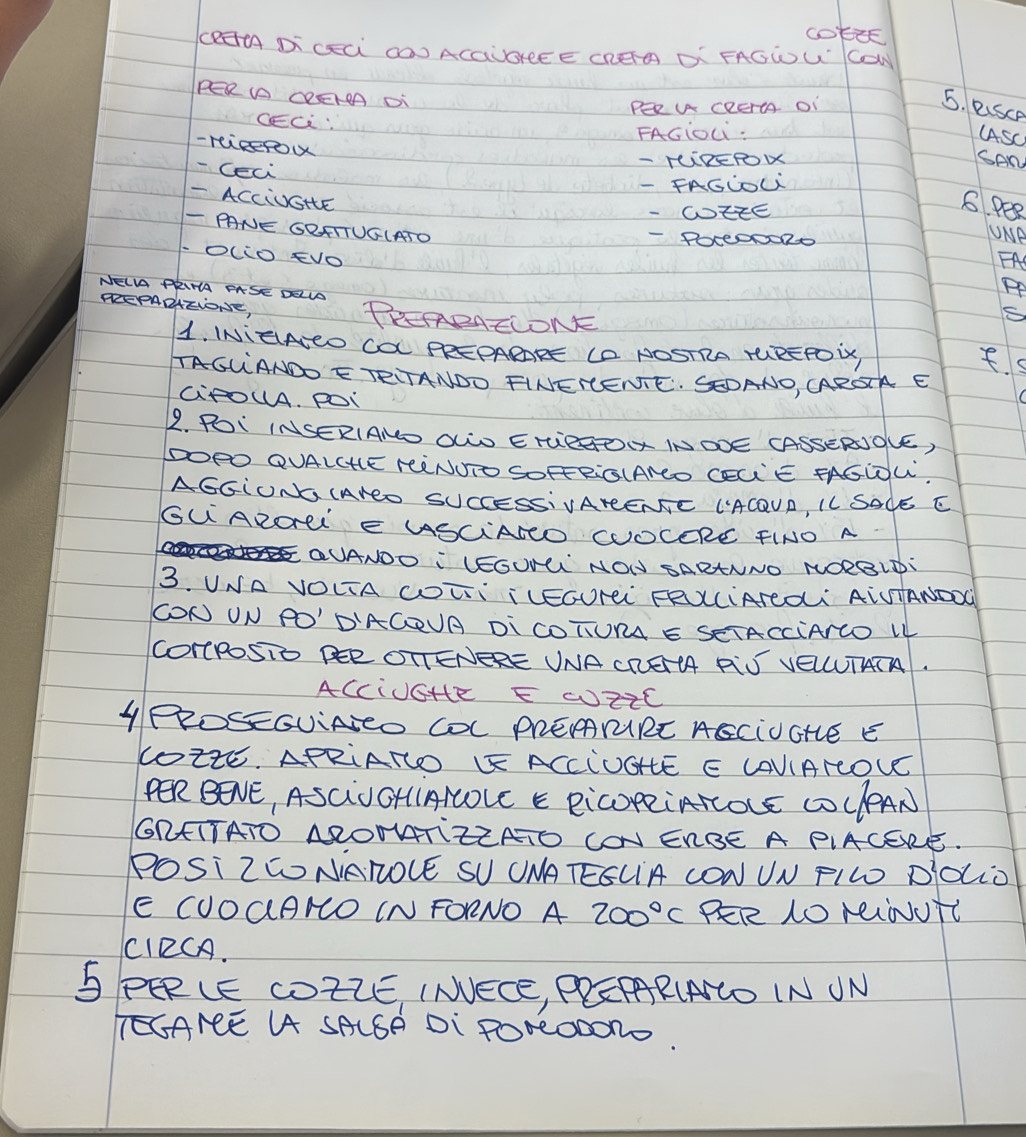 COZZE
CREMA Di CECi CON ACCIUGHE E CREMA Di FAGiOLi CON
PER LA CREMA Di
CECi:
- MiREPOIX
- CECi
- ACCIUGHE
- PANE GRATTUGIATO
- OLIO EVO
PER LA CREMA Di
FAGIOLi:
- MiREPOIX
- FAGiOLi
- COZZE
- POMODORO
NELLA PRIMA FASE DELLA
PREPARAZIONE,
PREPARAZIONE
1. INIZIAMO COL PREPARARE LA NOSTRA MIREPOIX,
TAGLIANDO E TRITANDO FINEMENTE. SEDANO, CAROTA E
CIPOLLA. POI
2. POI INSERIAMO OLIO E MIREPOIX IN DUE CASSERUOLE,
DOPO QUALCHE MINUTO SOFFRIGIAMO CECI E FAGIOLI.
AGGIUNGIAMO SUCCESSIVAMENTE L'ACQUA, IL SALE E
GLI AROMI E LASCIAMO CUOCERE FINO A
QUANDO i LEGUMI NON SARANNO MORBIDI
3. UNA VOLTA COTTI i LEGUMI FRULLIAMOLI AIUTANDOCI
CON UN PO' D'ACQUA DI COTTURA E SETACCIAMO IL
COMPOSTO PER OTTENERE UNA CREMA PIÙ VELLUTATA.
ACCIUGHE E COZZE
4 PROSEGUIAMO COL PREPARARE ACCIUGHE E
COZZE. APRIAMO LE ACCIUGHE E LAVIAMOLE
PER BENE, ASCIUGHIAMOLE E RICOPRIAMOLE COL PAN
GRATTATO AROMATIZZATO CON ERBE A PIACERE.
POSIZIONIAMOLE SU UNA TEGLIA CON UN FILO D'OLIO
E CUOCIAMO IN FORNO A 200°C PER 10 MINUTI
CIRCA.
5 PER LE COZZE, INVECE, PREPARIAMO IN UN
TEGAME LA SALSA DI POMODORO.
5. RISCA
LASC
SAR
6. PER
UNA
FA
PA
S
7. S
C